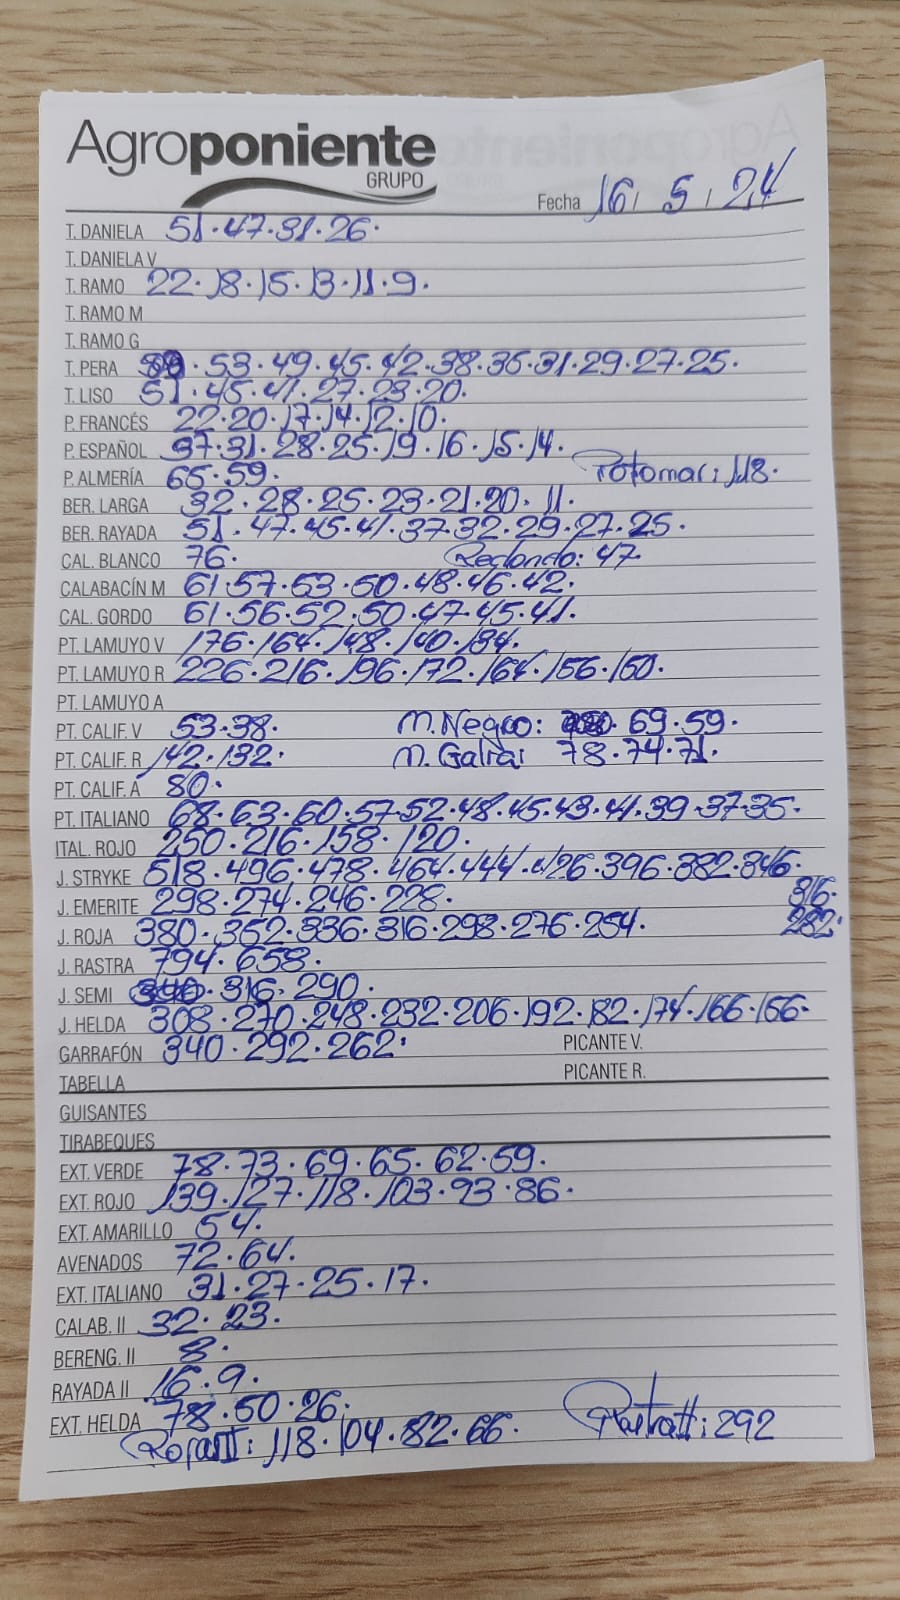 Agroponiente
GRUPO
Fecha 16 / 5 / 24
T. DANIELA 51.47.31.26.
T. DANIELA V
T. RAMO 22.18.15.13.11.9.
T. RAMO M
T. RAMO G
T. PERA .53.49.45.42.38.35.31.29.27.25.
T. LISO 51.45.41.27.23.20.
P. FRANCÉS 22.20.17.14.12.10.
P. ESPAÑOL 37.31.28.25.19.16.15.14.
P. ALMERÍA 65.59. Potomar: 118.
BER. LARGA 32.28.25.23.21.20.11.
BER. RAYADA 51.47.45.41.37.32.29.27.25.
CAL. BLANCO 76. Redondo: 47
CALABACÍN M 61.57.53.50.48.46.42.
CAL. GORDO 61.56.52.50.47.45.41.
PT. LAMUYO V 176.164.148.140.134.
PT. LAMUYO R 226.216.196.172.164.156.150.
PT. LAMUYO A
PT. CALIF. V 53.38. M. Negro: .69.59.
PT. CALIF. R 142.132. M. Galia: 78.74.71.
PT. CALIF. A 80.
PT. ITALIANO 68.63.60.57.52.48.45.43.41.39.37.35.
ITAL. ROJO 250.216.158.120.
J. STRYKE 518.496.478.464.444.426.396.382.346.
316.
J. EMERITE 298.274.246.228.
282.
J. ROJA 380.352.336.316.298.276.254.
J. RASTRA 794.658.
J. SEMI 340.316.290.
J. HELDA 308.270.248.232.206.192.182.174.166.156.
GARRAFÓN 340.292.262. PICANTE V.
TABELLA PICANTE R.
GUISANTES
TIRABEQUES
EXT. VERDE 78.73.69.65.62.59.
EXT. ROJO 139.127.118.103.93.86.
EXT. AMARILLO 54.
AVENADOS 72.64.
EXT. ITALIANO 31.27.25.17.
CALAB. II 32.23.
BERENG. II 8.
RAYADA II 16.9.
EXT. HELDA 78.50.26.
RojaII: 118.104.82.66. RastraII: 292